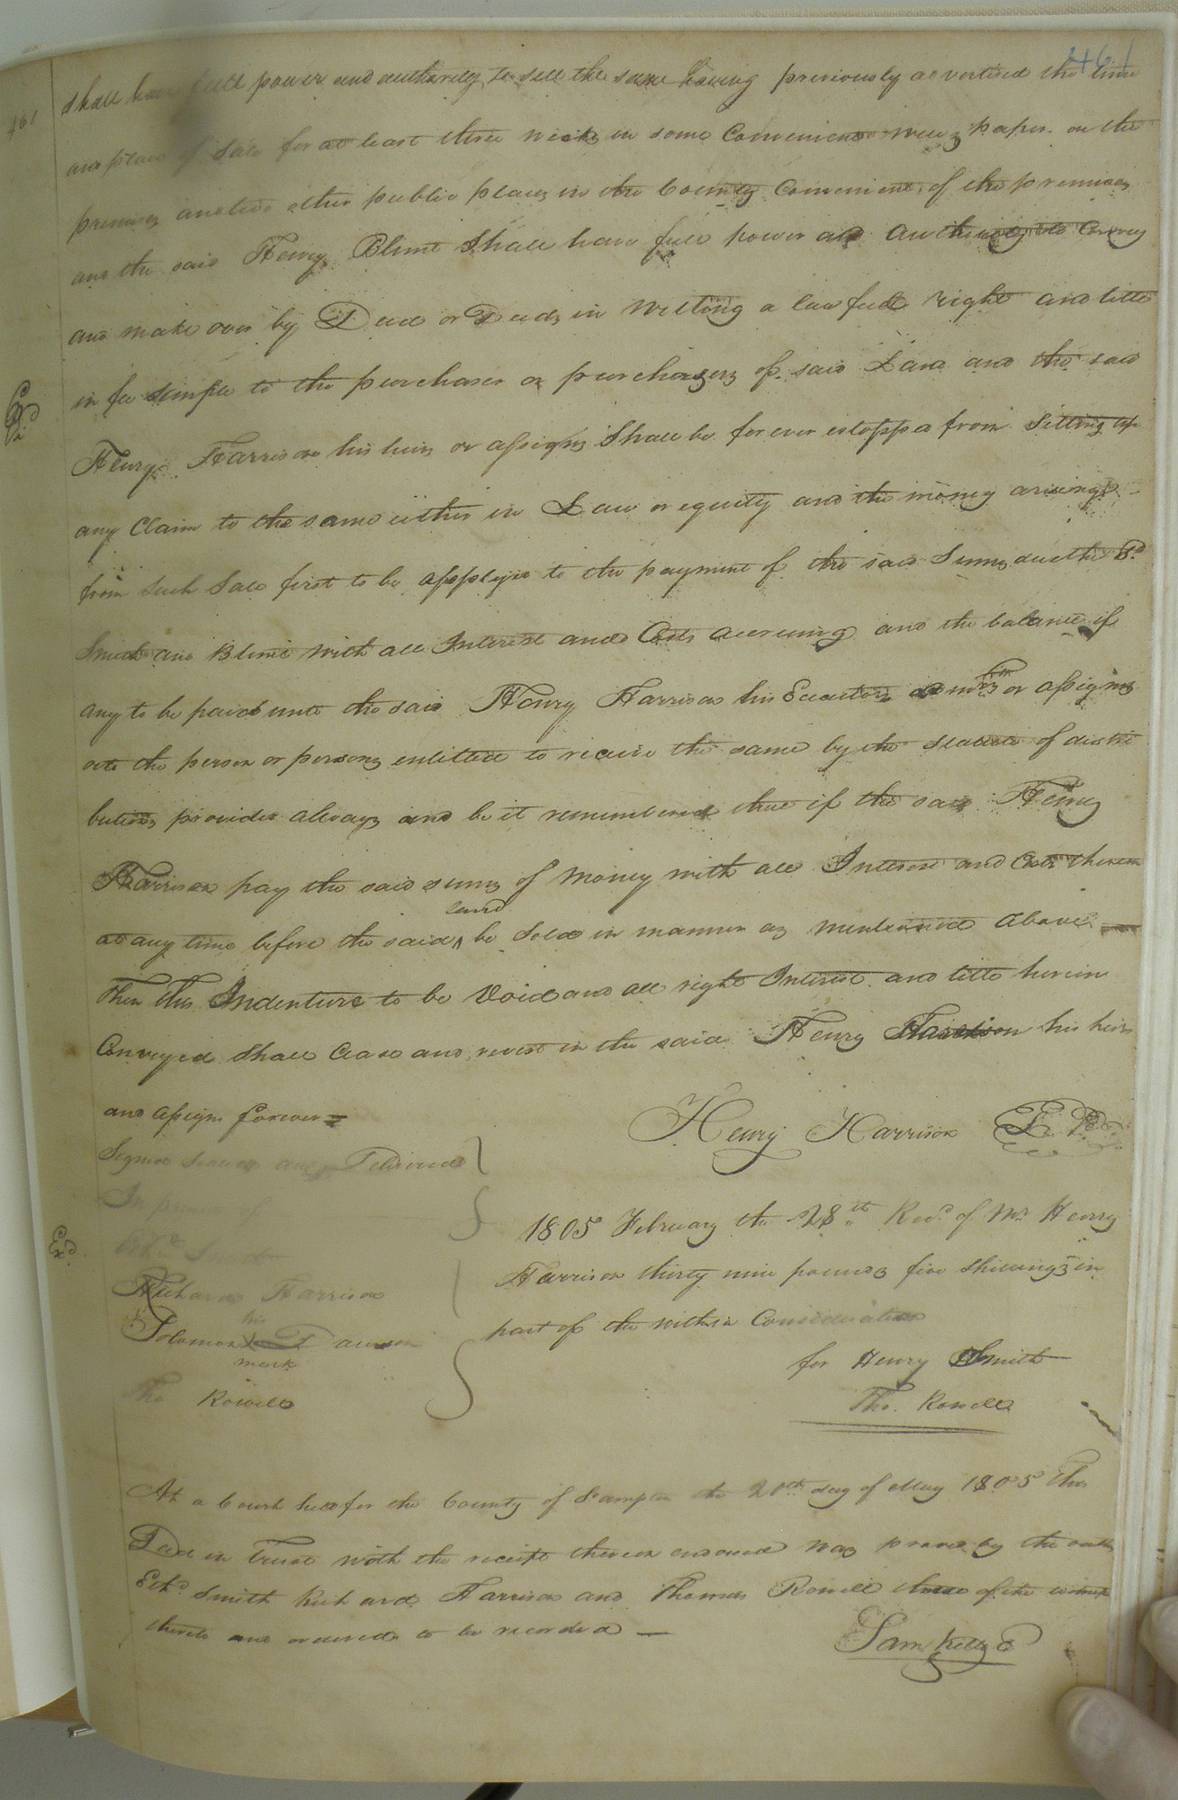 461
461
shall have full power and authority to sell the same having previously advertised the time
and place of Sale for at least three weeks in some Convenient newspaper on the
premises and two other public places in the County Convenient of the premises
and the said Henry Blunt Shall have full power and authority to Convey
and make over by Deed or Deeds in writing a lawfull right and title
in fee simple to the purchaser or purchasers of said Land and the said
Henry Harrison his heirs or assigns Shall be forever estoppd from Setting up
any Claim to the same either in Law or equity and the money arising
from such Sale first to be applyed to the payment of the said Sums due the Sd.
Smith and Blunt with all Interest and Costs accruing and the balance if
any to be paid unto the said Henry Harrison his Executors admrs or assigns
or to the person or persons entitled to receive the same by the statute of distri
butions provided always and be it remembered that if the said Henry
Harrison pay the said sums of Money with all Interest and Costs thereon
at any time before the said land be Sold in manner as mentioned above
then this Indenture to be Void and all right Interest and title herein
Conveyed Shall Cease and revest in the said Henry Harrison his heirs
and assigns forever
Henry Harrison L. S.
Signed Sealed and Delivered
In presence of
Smith
Richard Harrison
his
Solomon X Dawson
mark
Tho Rowell
1805 February the 28th Recd. of Mr Henry
Harrison thirty nine pounds five Shillings in
part of the within Consideration
for Henry Smith
Tho. Rowell
At a Court held for the County of Southampton the 20th day of May 1805 This
Deed in Trust with the receipt thereon endorsed was proved by the oaths
Smith Richard Harrison and Thomas Rowell three of the witnesses
thereto and ordered to be recorded
Sam Kello C